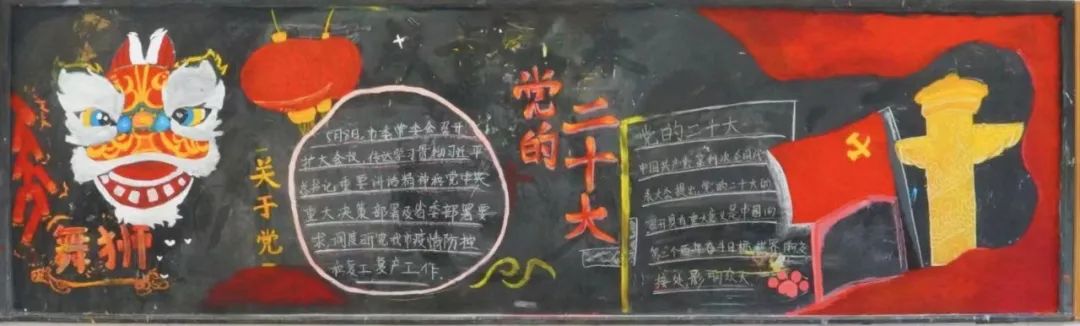 舞狮
关于党
5月8日,市委常委会召开
扩大会议,传达学习贯彻习近平
总书记重要讲话精神和党中央
重大决策部署及省委部署要
求,调度研究我市疫情防控
和复工复产工作。
党的
二十大
党的二十大
中国共产党第
表大会提出,党的二十大的
召开具有重大意义是中国向
第二个百年奋斗目标
接处,影响众大